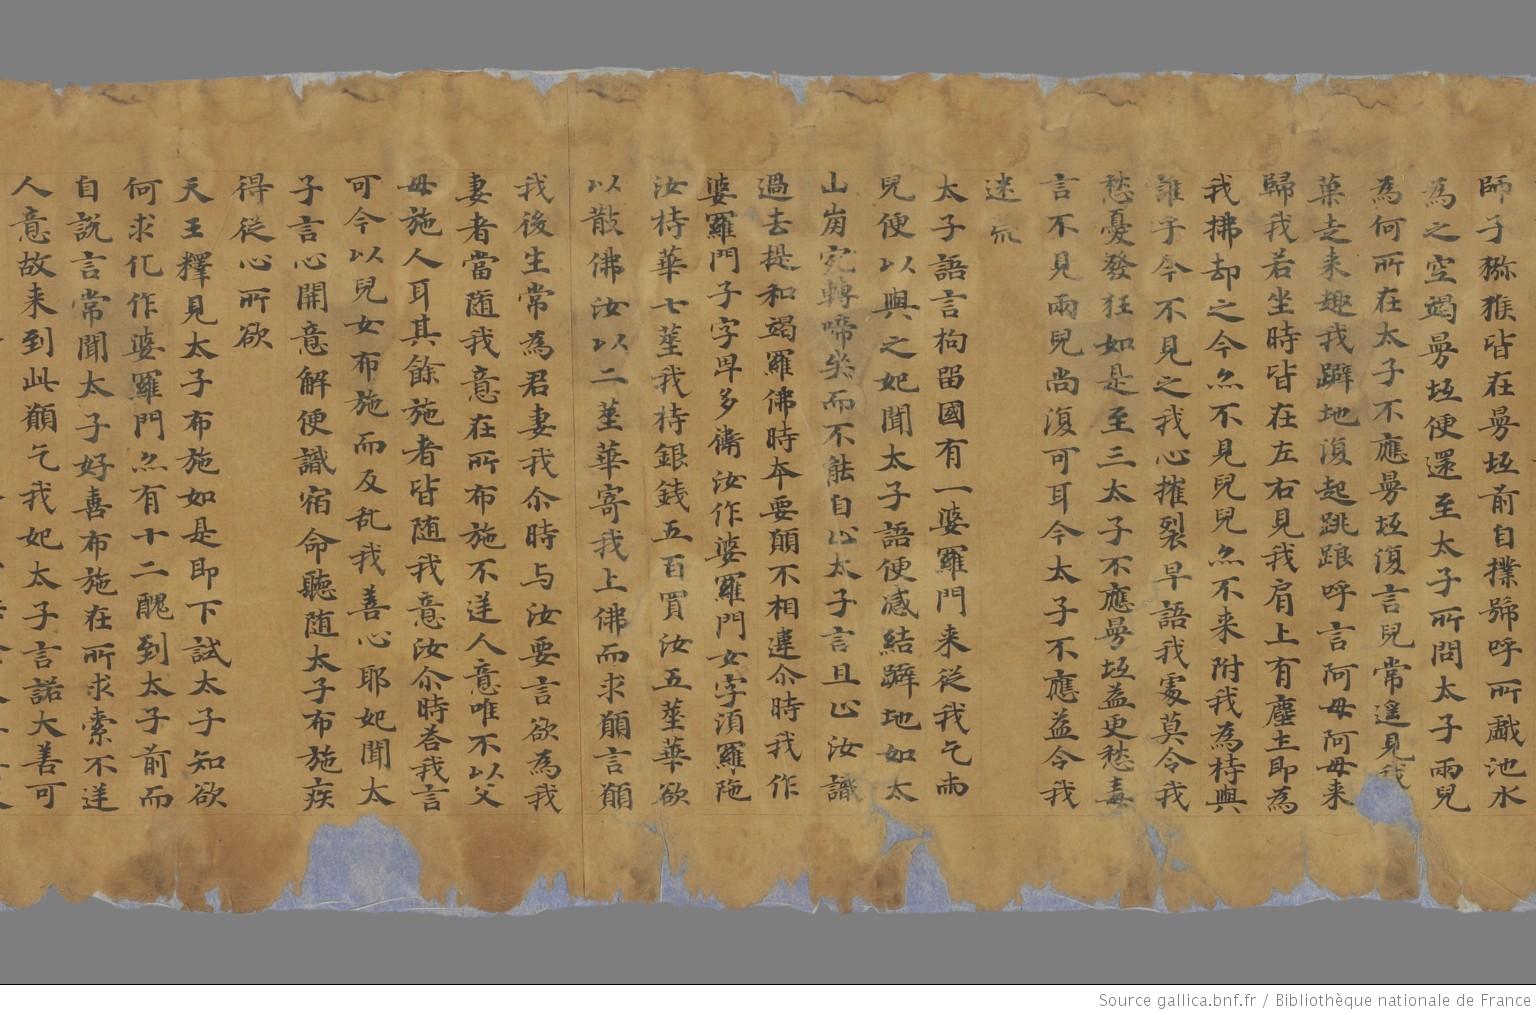 師子獼猴皆在曼坻前自撲號呼所戲池水
為之空竭曼坻便還至太子所問太子兩兒
為何所在太子不應曼坻復言兒常遥見我
菓走来趣我躃地復起跳踉呼言阿母阿母来
歸我若坐時皆在左右見我肩上有塵土即為
我拂却之今亦不見兒兒亦不来附我為持與
誰乎今不見之我心摧裂早語我處莫令我
愁憂發狂如是至三太子不應曼坻益更愁毒
言不見兩兒尚復可耳今太子不應益令我
迷荒
太子語言拘留國有一婆羅門来從我乞兩
兒便以與之妃聞太子語便感結躃地如太
山崩宛轉啼哭而不能自止太子言且止汝識
過去提和竭羅佛時本要願不相違尒時我作
婆羅門子字𢌿多衛汝作婆羅門女字須羅陁
汝持華七莖我持銀錢五百買汝五莖華欲
以散佛汝以二莖華寄我上佛而求願言願
我後生常為君妻我尒時与汝要言欲為我
妻者當随我意在所布施不逆人意唯不以父
母施人耳其餘施者皆随我意汝尒時荅我言
可今以兒女布施而反乱我善心耶妃聞太
子言心開意解便識宿命聽随太子布施疾
得從心所欲
天王釋見太子布施如是即下試太子知欲
何求化作婆羅門亦有十二醜到太子前而
自說言常聞太子好喜布施在所求索不逆
人意故来到此願乞我妃太子言諾大善可